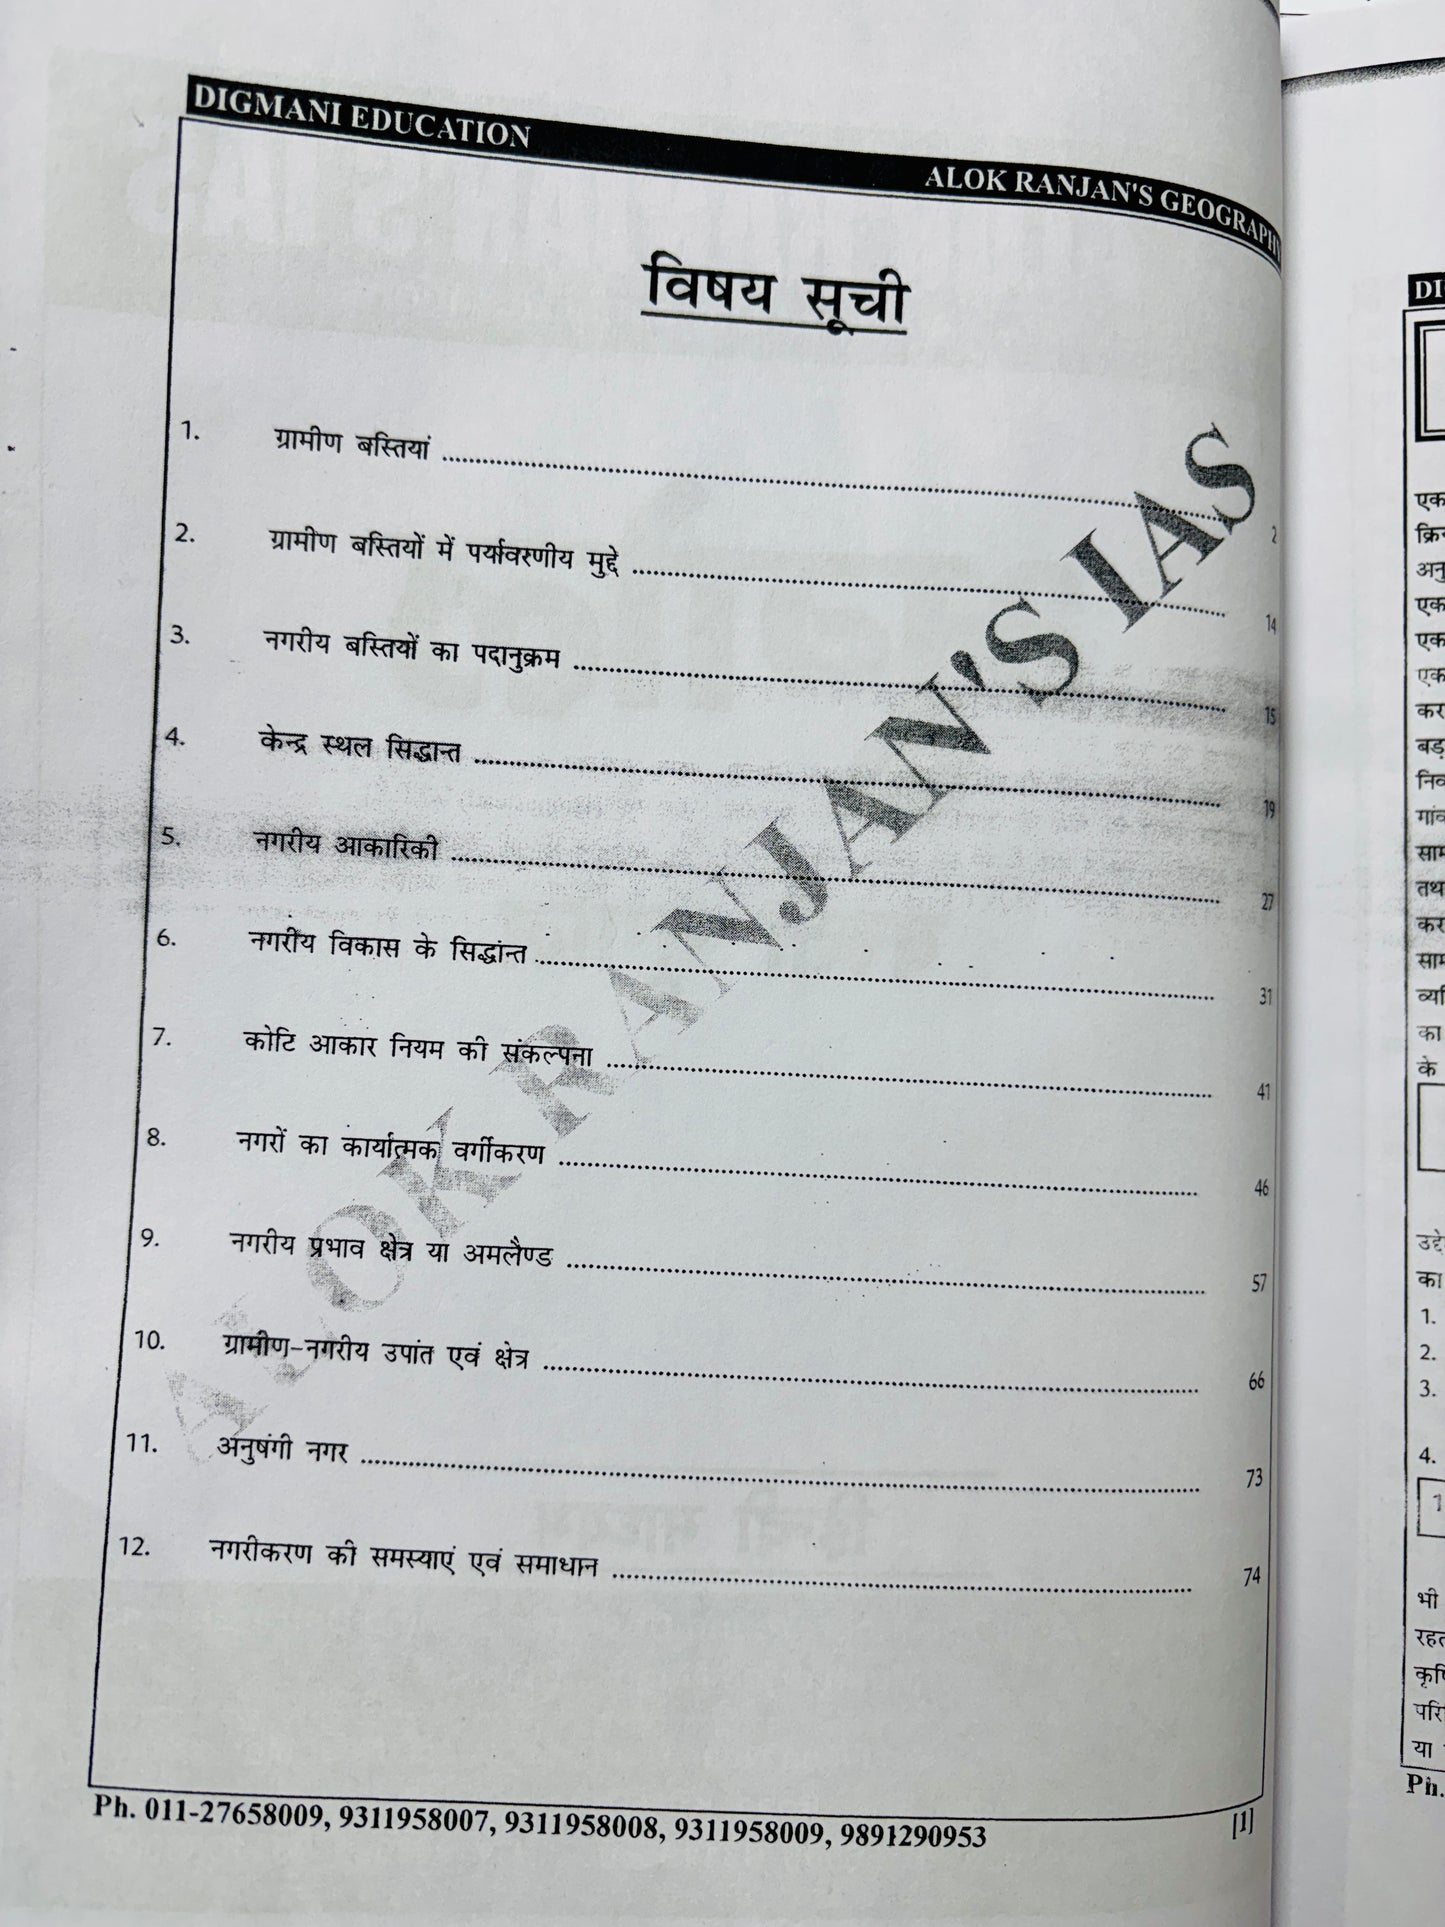 DIGMANI EDUCATION
ALOK RANJAN'S GEOGRAPHY
विषय सूची
1. ग्रामीण बस्तियां 2
2. ग्रामीण बस्तियों में पर्यावरणीय मुद्दे 14
3. नगरीय बस्तियों का पदानुक्रम 15
4. केन्द्र स्थल सिद्धान्त 19
5. नगरीय आकारिकी 27
6. नगरीय विकास के सिद्धांन्त 31
7. कोटि आकार नियम की संकल्पना 41
8. नगरों का कार्यात्मक वर्गीकरण 46
9. नगरीय प्रभाव क्षेत्र या अमलैण्ड 57
10. ग्रामीण-नगरीय उपांत एवं क्षेत्र 66
11. अनुषंगी नगर 73
12. नगरीकरण की समस्याएं एवं समाधान 74
ALOK RANJAN'S IAS
Ph. 011-27658009, 9311958007, 9311958008, 9311958009, 9891290953
[1]
एक
एक
एक
एक
कर
तथ
कर
का
के
का
1.
2.
3.
4.
भी
या
Ph.